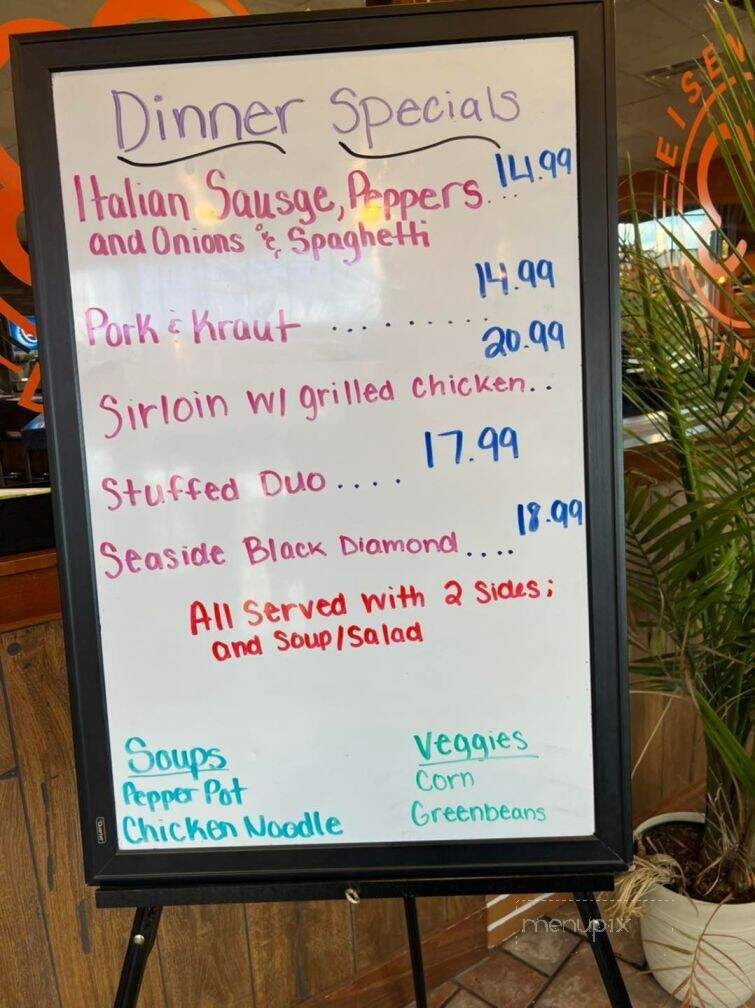 Dinner Specials
Italian Sausge, Peppers... 14.99
and Onions & Spaghetti
14.99
Pork & Kraut .........
20.99
Sirloin w/ grilled chicken..
17.99
Stuffed Duo ....
18.99
Seaside Black Diamond ....
All Served with 2 sides;
and Soup/Salad
Soups
Pepper Pot
Chicken Noodle
Veggies
Corn
Greenbeans
menupix